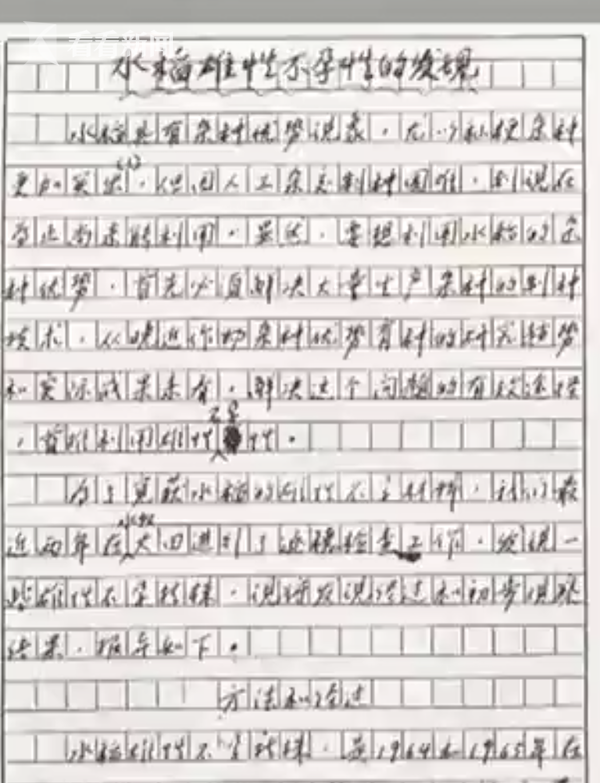 看看新闻
水稻雄性不孕性的发现
水稻具有杂种优势现象，尤以籼粳杂种
更加突出(1)，但因人工杂交制种困难，到现在
为止尚未能利用。显然，要想利用水稻的杂
种优势，首先必须解决大量生产杂种的制种
技术，从晚近作物杂种优势育种的研究趋势
和实际成果来看，解决这个问题的有效途径
，首推利用雄性不孕性。
为了寻获水稻的雄性不孕材料，我们最
近两年在水稻大田进行了逐穗检查工作，发现一
些雄性不孕植株，现将发现经过和初步观察
结果，报导如下。
方法和经过
水稻雄性不孕植株，是1964和1965年在